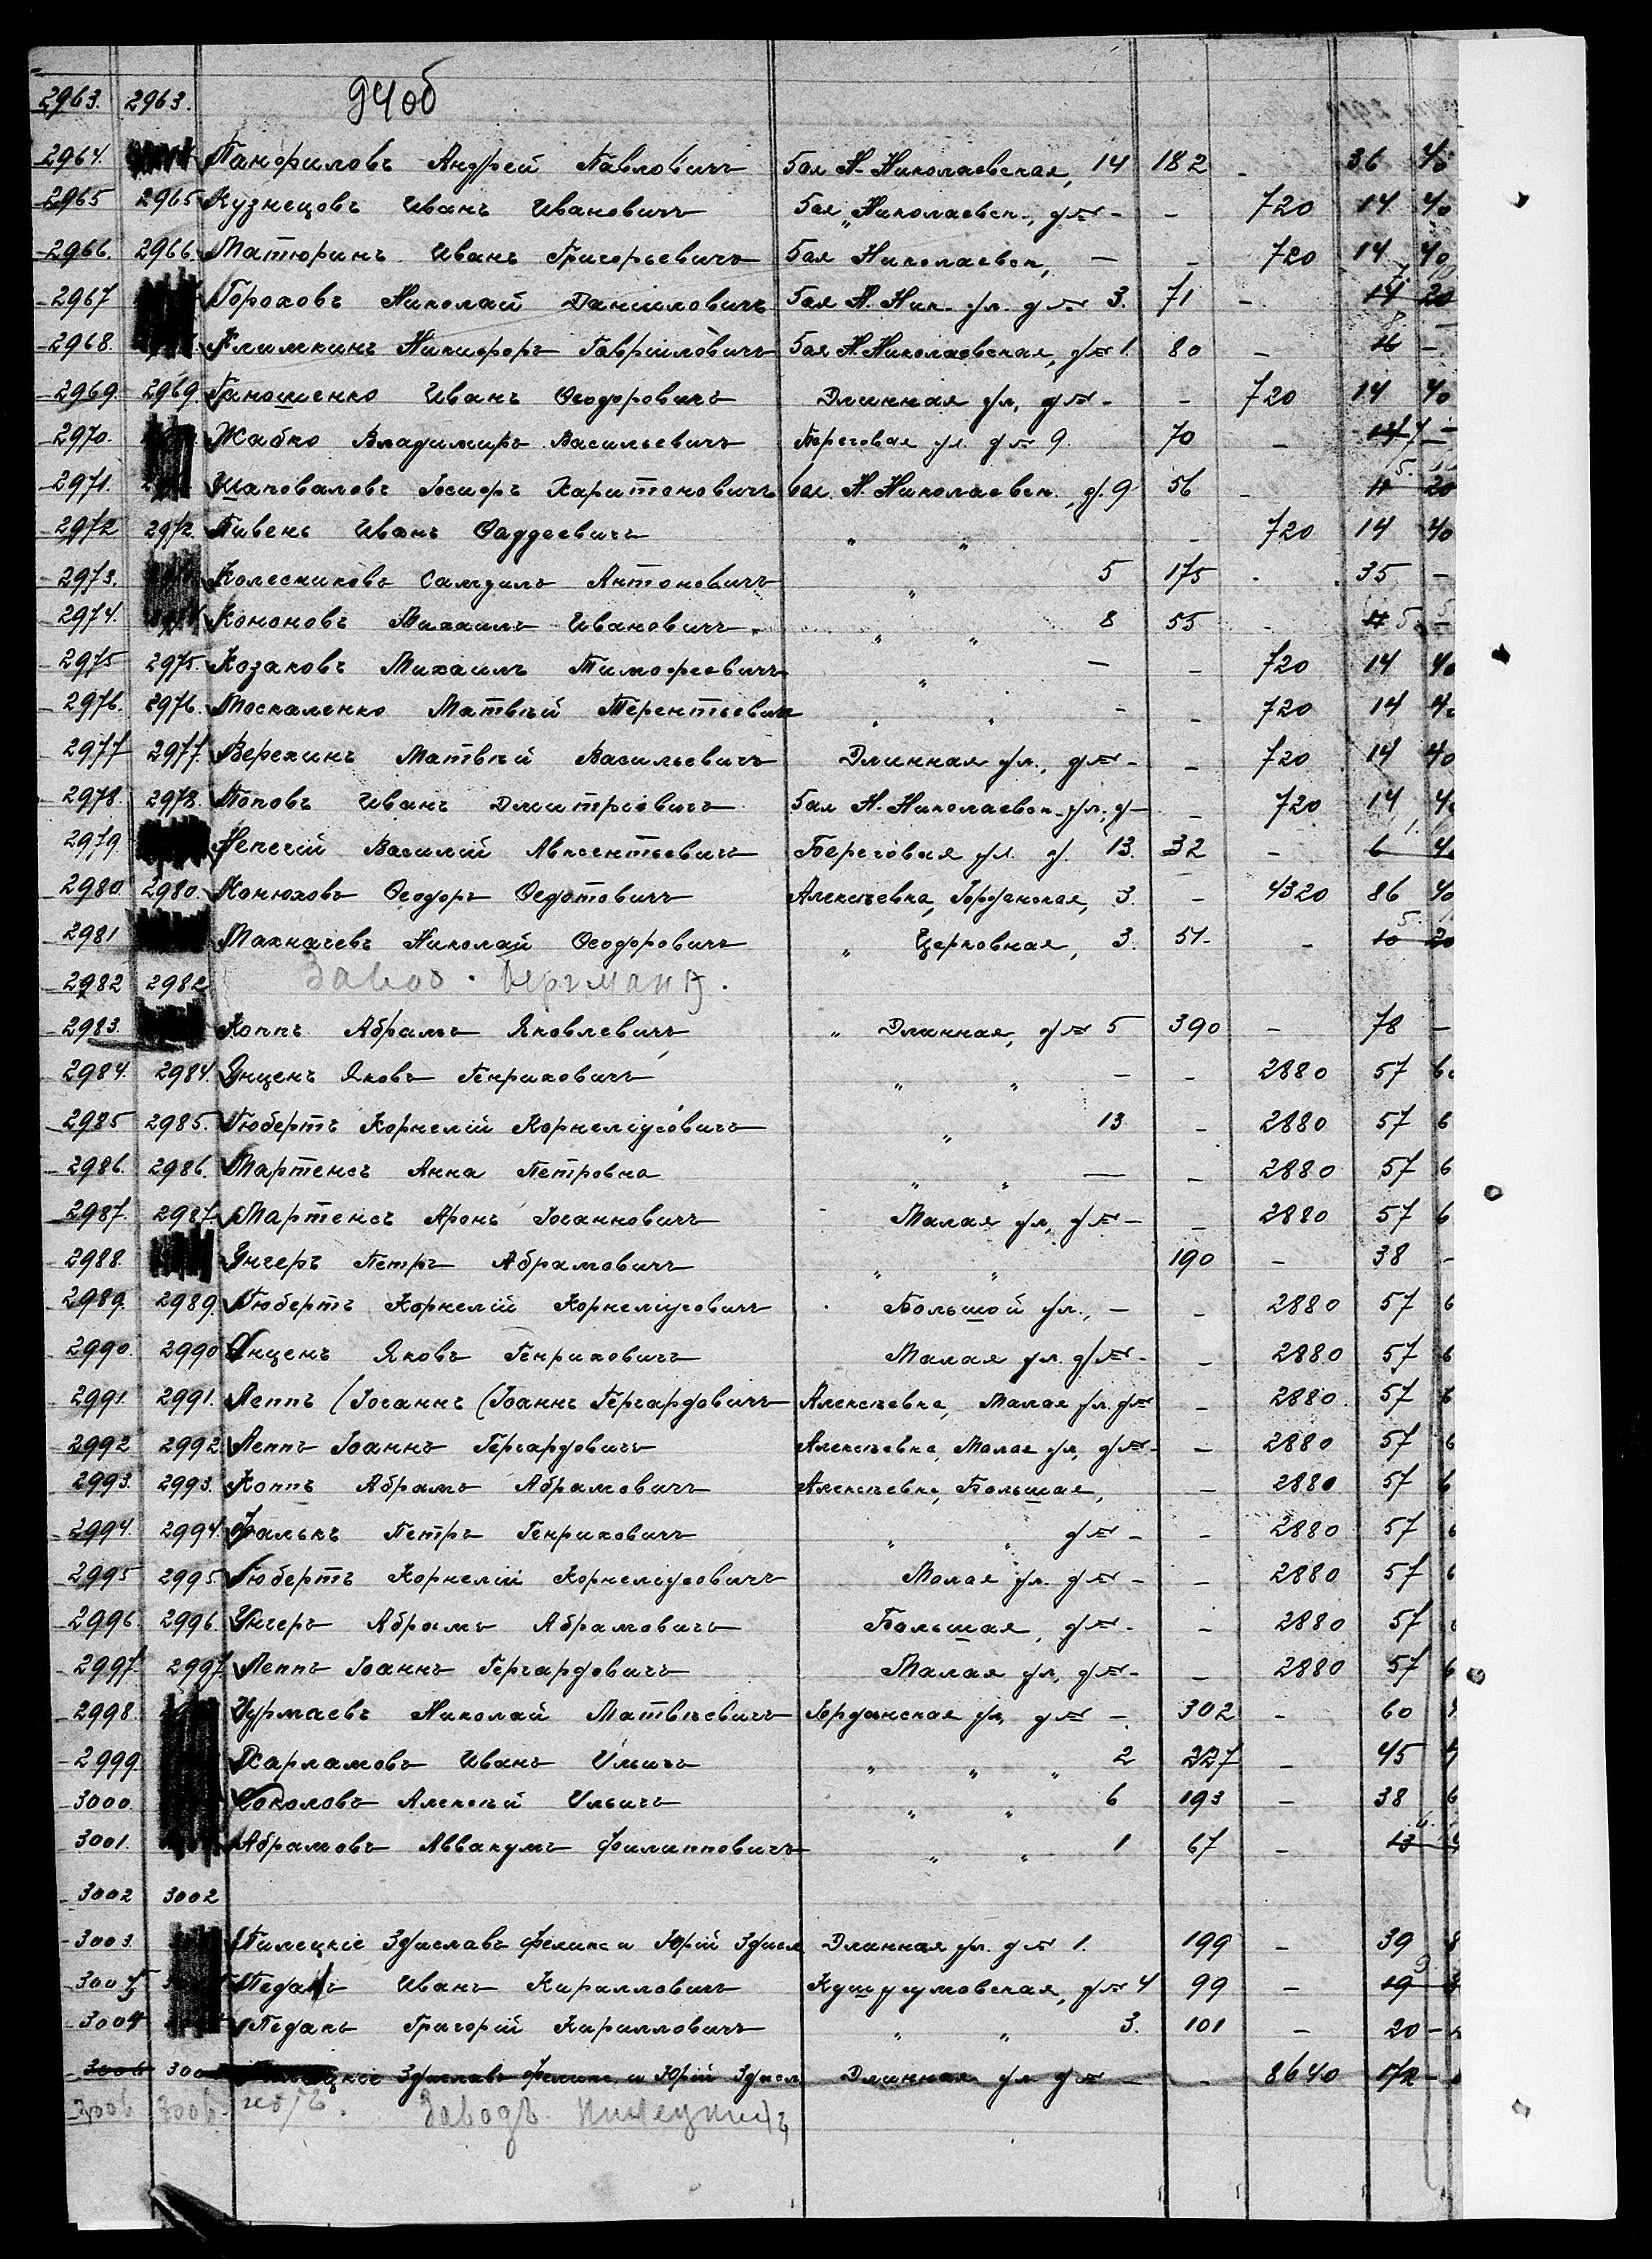 2963. 2963. 94об
2964. Панфиловъ Андрей Павловичъ 5ая Н-Николаевская, 14 182 - 36 40
2965 2965 Кузнецовъ Иванъ Ивановичъ 5ая „ Николаевск., д№ - - 720 14 40
2966. 2966. Матюринъ Иванъ Григорьевичъ 5ая Николаевск, — - 720 14 40
2967 Гороховъ Николай Даниловичъ 5ая Н. Ник. ул. д№ 3. 71 - 14 20
2968. Климкинъ Никифоръ Гавріиловичъ 5ая Н. Николаевская, д№ 1 80 - 16 -
2969. 2969. Иванъ Ѳеодоровичъ Длинная ул, д№ - - 720 14 40
2970. Жабко Владимиръ Васильевичъ Береговая ул. д№ 9. 70 - 14 7 -
2971. Шаповаловъ Іосифъ Харитоновичъ 6ая. Н. Николаевск., д. 9 56 - 11 20
2972 2972. Пивень Иванъ Фаддеевичъ „ „ - 720 14 40
2973. Колесниковъ Самуилъ Антоновичъ „ 5 175 - 35 -
2974. Кононовъ Михаилъ Ивановичъ „ „ 8 55 - 11 5 -
2975 2975. Козаковъ Михаилъ Тимофеевичъ „ — - 720 14 40
2976. 2976. Москаленко Матвѣй Терентьевичъ „ „ - - 720 14 40
2977 2977. Верехинъ Матвѣй Васильевичъ Длинная ул., д№ - - 720 14 40
2978. 2978. Поповъ Иванъ Дмитріевичъ 5ая Н. Николаевск. ул., д - - 720 14 40
2979. Василій Авксентьевичъ Береговая ул. д. 13. 32 - 6
2980. 2980. Конюховъ Ѳеодоръ Ѳедотовичъ Алексѣевка, Іорданская, 3. - 4320 86 40
2981 Махначевъ Николай Ѳеодоровичъ „ Церковная, 3. 51- - 10 20
2982 2982 Завод.
2983. Коппъ Абрамъ Яковлевичъ „ Длинная, д№ 5 390 - 78 -
2984. 2984. Янценъ Яковъ Генриховичъ „ „ — - 2880 57 6
2985 2985. Гюбертъ Корнелій Корнеліусовичъ „ 13 - 2880 57 6
2986. 2986. Мартенсъ Анна Петровна „ „ — - 2880 57 6
2987. 2987. Мартенсъ Аронъ Іоганновичъ Малая ул, д№ - - 2880 57 6
2988. Унгеръ Петръ Абрамовичъ „ „ 190 - 38 -
2989. 2989. Гюбертъ Корнелій Корнеліусовичъ Большой ул., - - 2880 57 6
2990. 2990 Янценъ Яковъ Генриховичъ Малая ул. д№ - - 2880 57 6
2991. 2991. Леппъ (Іоганнъ (Іоаннъ Гергардовичъ Алексѣевка, Малая ул. д№ - 2880. 57 6
2992 2992. Леппъ Іоаннъ Гергардовичъ Алексѣевка, Малая ул, д№ - - 2880 57 6
2993. 2993. Коппъ Абрамъ Абрамовичъ Алексѣевка, Большая, - 2880 57 6
2994. 2994. Фалькъ Петръ Генриховичъ „ „ д№ - - 2880 57 6
2995 2995 Гюбертъ Корнелій Корнеліусовичъ Малая ул. д№ - - 2880 57 6
2996. 2996. Унгеръ Абрамъ Абрамовичъ Большая, д№ - - 2880 57
2997. 2997 Леппъ Іоаннъ Гергардовичъ Малая ул, д№ - - 2880 57 6
2998. Чурмаевъ Николай Матвѣевичъ Іорданская ул, д№ - 302 - 60
2999. Харламовъ Иванъ Ильичъ „ „ „ 2 227 - 45
3000. Соколовъ Алексѣй Ильичъ „ „ 6 193 - 38 6
3001. Абрамовъ Аввакумъ Филипповичъ „ „ 1 67 - 13
3002 3002
3003. Пилецкіе Здиславъ Феликс и Юрій Здисл Длинная ул. д№ 1. 199 - 39 8
3005 Педанъ Иванъ Кирилловичъ д№ 4 99 - 19
3004 Педанъ Григорій Кирилловичъ „ „ 3. 101 - 20 -
3006 Здиславъ Феликс, и Юрій Здисл Длинная ул д№ — - 8640 172 -
3006 3006. Заводъ